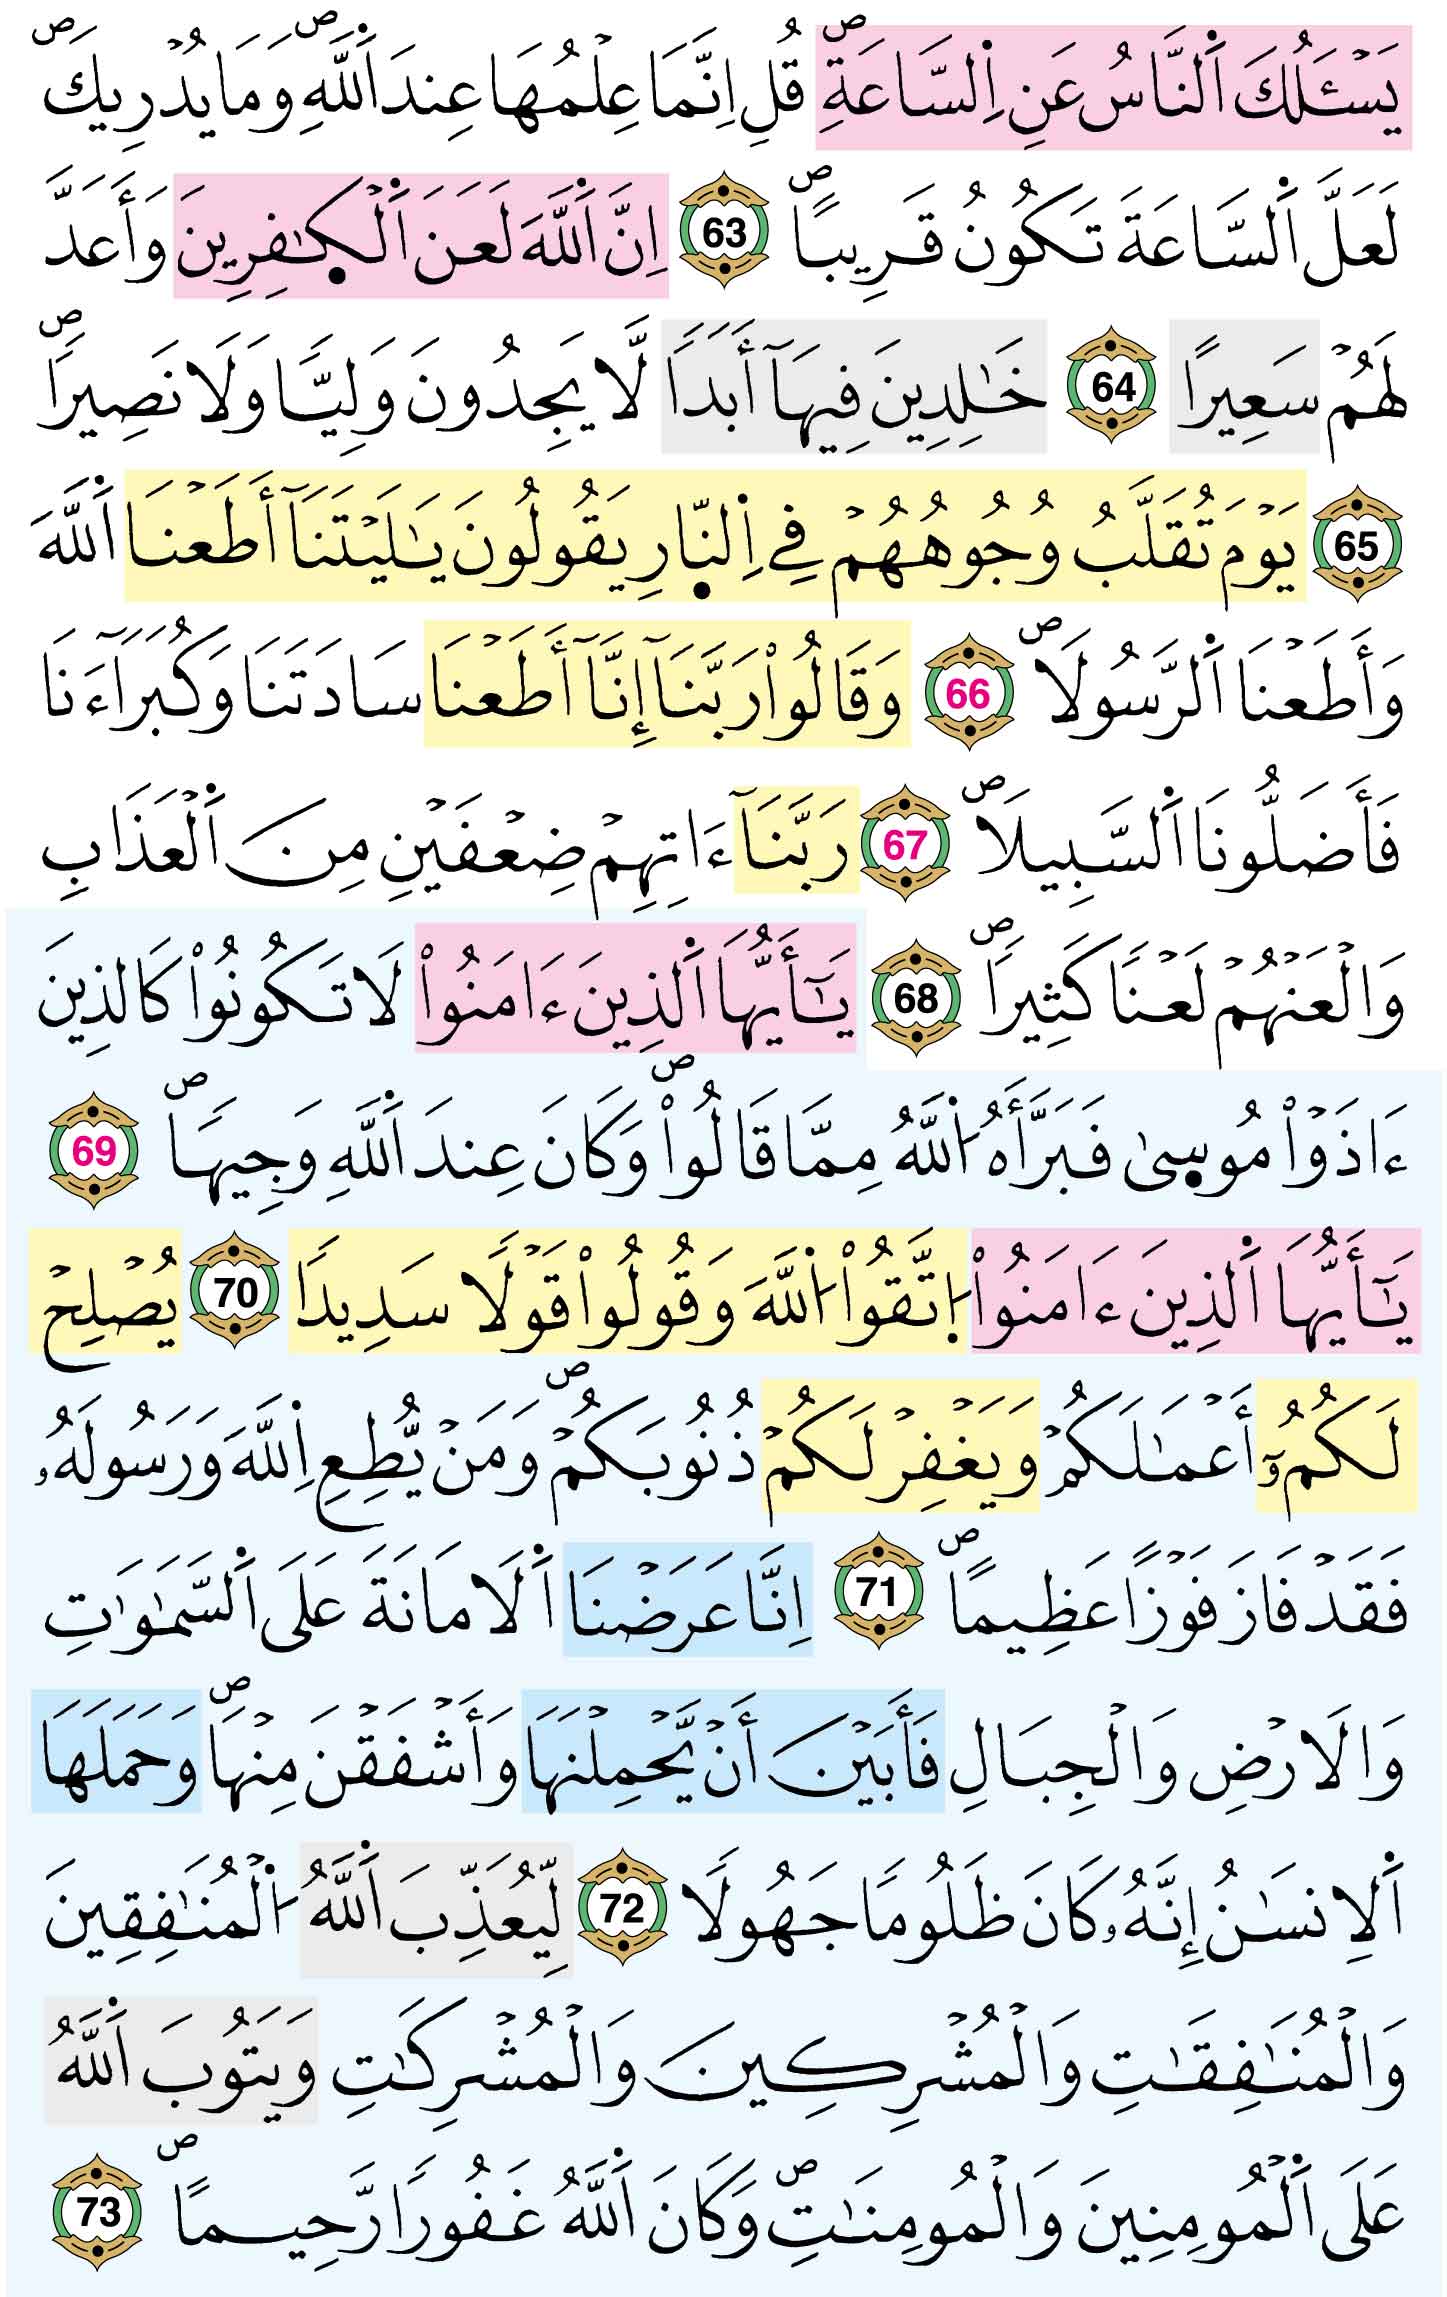 يَسْـَٔلُكَ اَ۬لنَّاسُ عَنِ اِ۬لسَّاعَةِۖ قُلِ اِنَّمَا عِلْمُهَا عِندَ اَ۬للَّهِۖ وَمَا يُدْرِيكَۖ
لَعَلَّ اَ۬لسَّاعَةَ تَكُونُ قَرِيباًۖ 63 اِنَّ اَ۬للَّهَ لَعَنَ اَ۬لْكٰ۪فِرِينَ وَأَعَدَّ
لَهُمْ سَعِيراً 64 خَٰلِدِينَ فِيهَآ أَبَداٗ لَّا يَجِدُونَ وَلِيّاٗ وَلَا نَصِيراٗۖ
65 يَوْمَ تُقَلَّبُ وُجُوهُهُمْ فِے اِ۬لنّ۪ارِ يَقُولُونَ يَٰلَيْتَنَآ أَطَعْنَا اَ۬للَّهَ
وَأَطَعْنَا اَ۬لرَّسُولَاۖ 66 وَقَالُواْ رَبَّنَآ إِنَّآ أَطَعْنَا سَادَتَنَا وَكُبَرَآءَنَا
فَأَضَلُّونَا اَ۬لسَّبِيلَاۖ 67 رَبَّنَآ ءَاتِهِمْ ضِعْفَيْنِ مِنَ اَ۬لْعَذَابِ
وَالْعَنْهُمْ لَعْناٗ كَثِيراٗۖ 68 يَٰٓأَيُّهَا اَ۬لذِينَ ءَامَنُواْ لَا تَكُونُواْ كَالذِينَ
ءَاذَوْاْ مُوس۪يٰ فَبَرَّأَهُ اُ۬للَّهُ مِمَّا قَالُواْۖ وَكَانَ عِندَ اَ۬للَّهِ وَجِيهاٗۖ 69
يَٰٓأَيُّهَا اَ۬لذِينَ ءَامَنُواْ اُ۪تَّقُواْ اُ۬للَّهَ وَقُولُواْ قَوْلاٗ سَدِيداٗ 70 يُصْلِحْ
لَكُمُۥٓ أَعْمَٰلَكُمْ وَيَغْفِرْ لَكُمْ ذُنُوبَكُمْۖ وَمَنْ يُّطِعِ اِ۬للَّهَ وَرَسُولَهُۥ
فَقَدْ فَازَ فَوْزاً عَظِيماًۖ 71 اِنَّا عَرَضْنَا اَ۬لَامَانَةَ عَلَي اَ۬لسَّمَٰوَٰتِ
وَالَارْضِ وَالْجِبَالِ فَأَبَيْنَ أَنْ يَّحْمِلْنَهَا وَأَشْفَقْنَ مِنْهَاۖ وَحَمَلَهَا
اَ۬لِانسَٰنُ إِنَّهُۥ كَانَ ظَلُوماٗ جَهُولاٗ 72 لِّيُعَذِّبَ اَ۬للَّهُ اُ۬لْمُنَٰفِقِينَ
وَالْمُنَٰفِقَٰتِ وَالْمُشْرِكِينَ وَالْمُشْرِكَٰتِ وَيَتُوبَ اَ۬للَّهُ
عَلَي اَ۬لْمُومِنِينَ وَالْمُومِنَٰتِۖ وَكَانَ اَ۬للَّهُ غَفُوراٗ رَّحِيماٗۖ 73